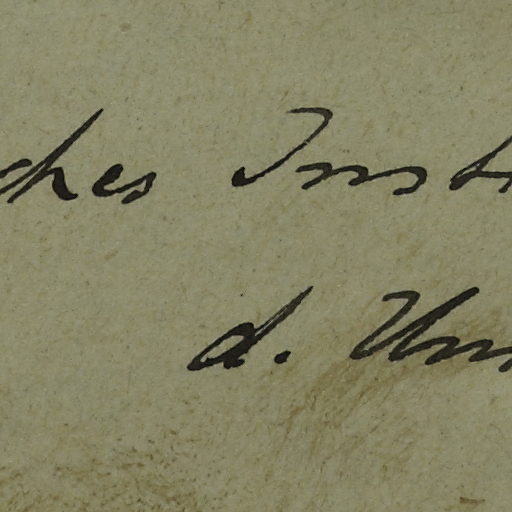 ches Inst
d. Un